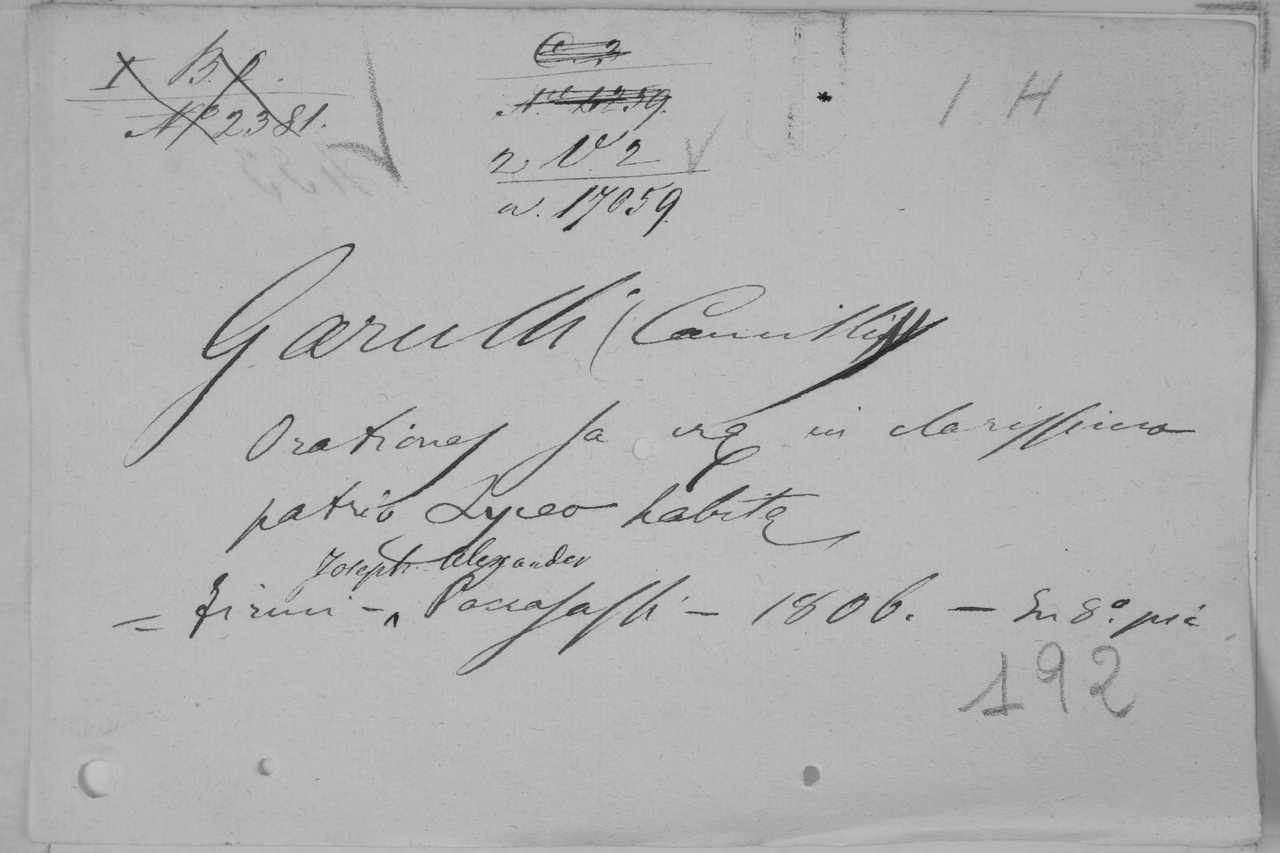 I B. f.
Nº 2381.
C. 2
N.º 4259.
2 V. 2
n. 17059.
1 H
Garulli (Camilli
Orationes in clarissimo
patrio Lyceo habitæ
Joseph Alexander
= Firmi - ^ - 1806. - In 8.º pic
192